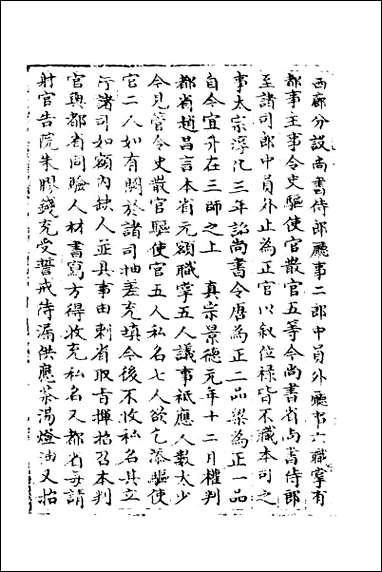 西廊分設尚書侍郎廳事二郎中員外廳事六職掌有
都事主事令史驅使官散官五等今尚書省尚書侍郎
至諸司郎中員外止為正官以叙位祿皆不職本司之
事太宗淳化三年詔尚書令唐為正二品梁為正一品
自今宜升在三師之上　真宗景德元年十二月權判
都省趙昌言本省元額職掌五人議事祗應人數太少
今見管令史散官驅使官五人私名七人欲乞添驅使
官二人如有闕於諸司抽差充填今後不收私名其立
行諸司如額內缺人並具事由剌省取旨揮招召本判
官與都省同驗人材書寫方得收充私名又都省每請
射官告院朱膠錢充受誓戒待漏供應茶湯燈油又抬